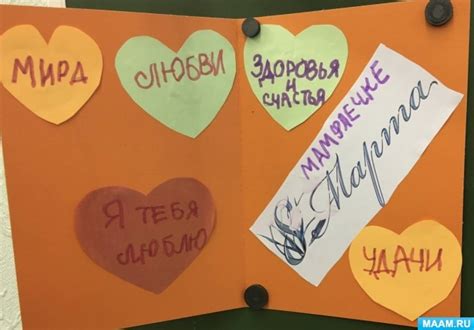 МИРА
ЛЮБВИ
ЗДОРОВЬЯ
И
СЧАСТЬЯ
МАМФЛЕЧКЕ
8 Марта
Я ТЕБЯ
ЛЮБЛЮ
УДАЧИ
MAAM.RU